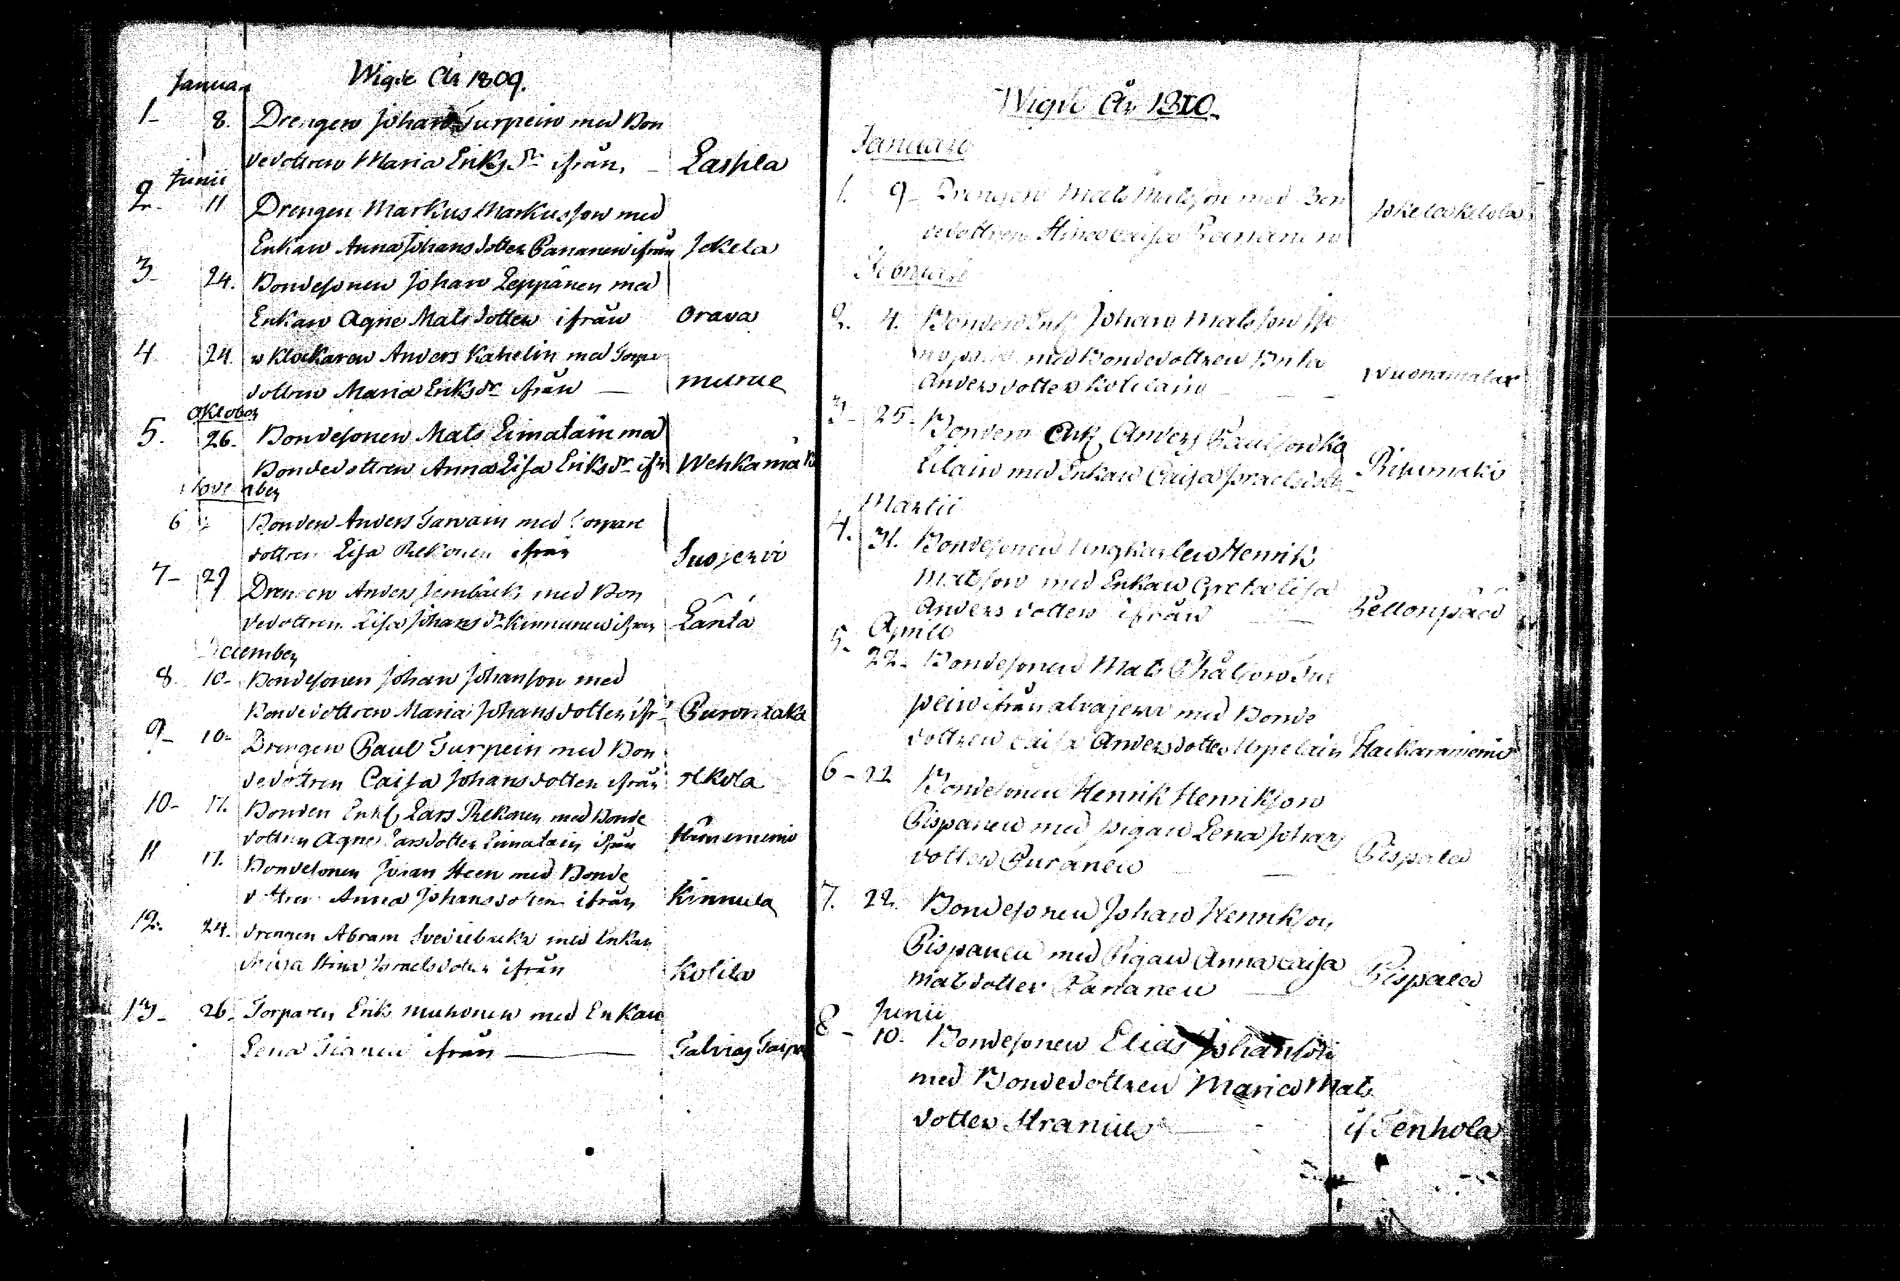 Wigde År 1809.
Januari
1- 8. Drengen Johan Turpein med Bon
dedottren Maria Eriks dr ifrån Laspla
Junii
2- 11 Drengen Markus Markusson med
Enkan Anna Johans dotter Pananen ifrån Jokela
3- 24. Bondesonen Johan Leppänen med
Enkan Agne Mats dotter ifrån Orava
4 24. Klockaren Anders Kahelin med Torpar
dottren Maria Eriks dr ifrån — murue
Oktober
5. 26. Bondesonen Mats Limatain med
Bondedottren Anna Lisa Eriks dr ifr
November
6 Bonden Anders Tarvain med Torpare
dottren Lisa Rekonen ifrån Suojervi
7- 29 Drengen Anders med Bon
dedottren Lisa Johans dr Kinnunen ifrån Länta
December
8. 10- Bondesonen Johan Johansson med
Bondedottren Maria Johans dotter ifr
9- 10- Drengen Paul Turpein med Bon
dedottren Caisa Johans dotter ifrån Akola
10- 17. Bonden Enkl Lars Rekonen med Bonde
dottren Agnes Larsdotter Limatain ifrån
11 17. Bondesonen Johan Steen med Bonde
dottren Anna Johansdotter ifrån Kinnula
12. 24. Drengen Abram med Enkan
Stina Israelsdotter ifrån Kolila
13- 26. Torparen Erik Muhonen med Enkan
Lena ifrån — Talvias Torp
Wigde År 1810.
Januari
1. 9- Drengen Mats Matsson med Bon
dedottren Hinca Caisa Pananen
Februari
2. 4. Bonden Enkl Johan Matsson
med Bondedottren
Anders dotter Kolilain Wuonamalax
3- 25. Bonden Enkl Anders Paulsson Ko
lilain med Enkan Caisa Israelsdotter
Martii
4. 31. Bondesonen Ungkarlen Henrik
Matsson med Enkan Greta Lisa
Anders dotter ifrån Peltonpää
Aprill
5- 22- Bondesonen Mats Påhlsson Tur
pein ifrån Alvajervi med Bonde
dottren Caisa Andersdotter Urpelain
6- 22 Bondesonen Henrik Henriksson
Pispanen med pigan Lena Johans
dotter Puranen — Pispala
7. 22. Bondesonen Johan Henriksson
Pispanen med Pigan Anna Caisa
Matsdotter Pananen — Pispala
Junii
8- 10. Bondesonen Elias Johansson
med Bondedottren Maria Mats
dotter Hranius — if Tenhola